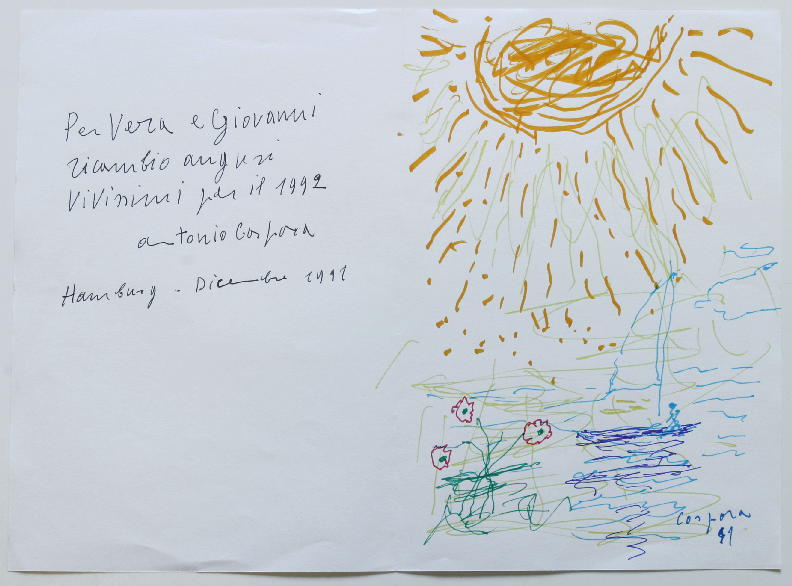 Per Vera e Giovanni
ricambio auguri
vivissimi per il 1992
antonio Corpora
Hamburg - Dicembre 1991
Corpora
91